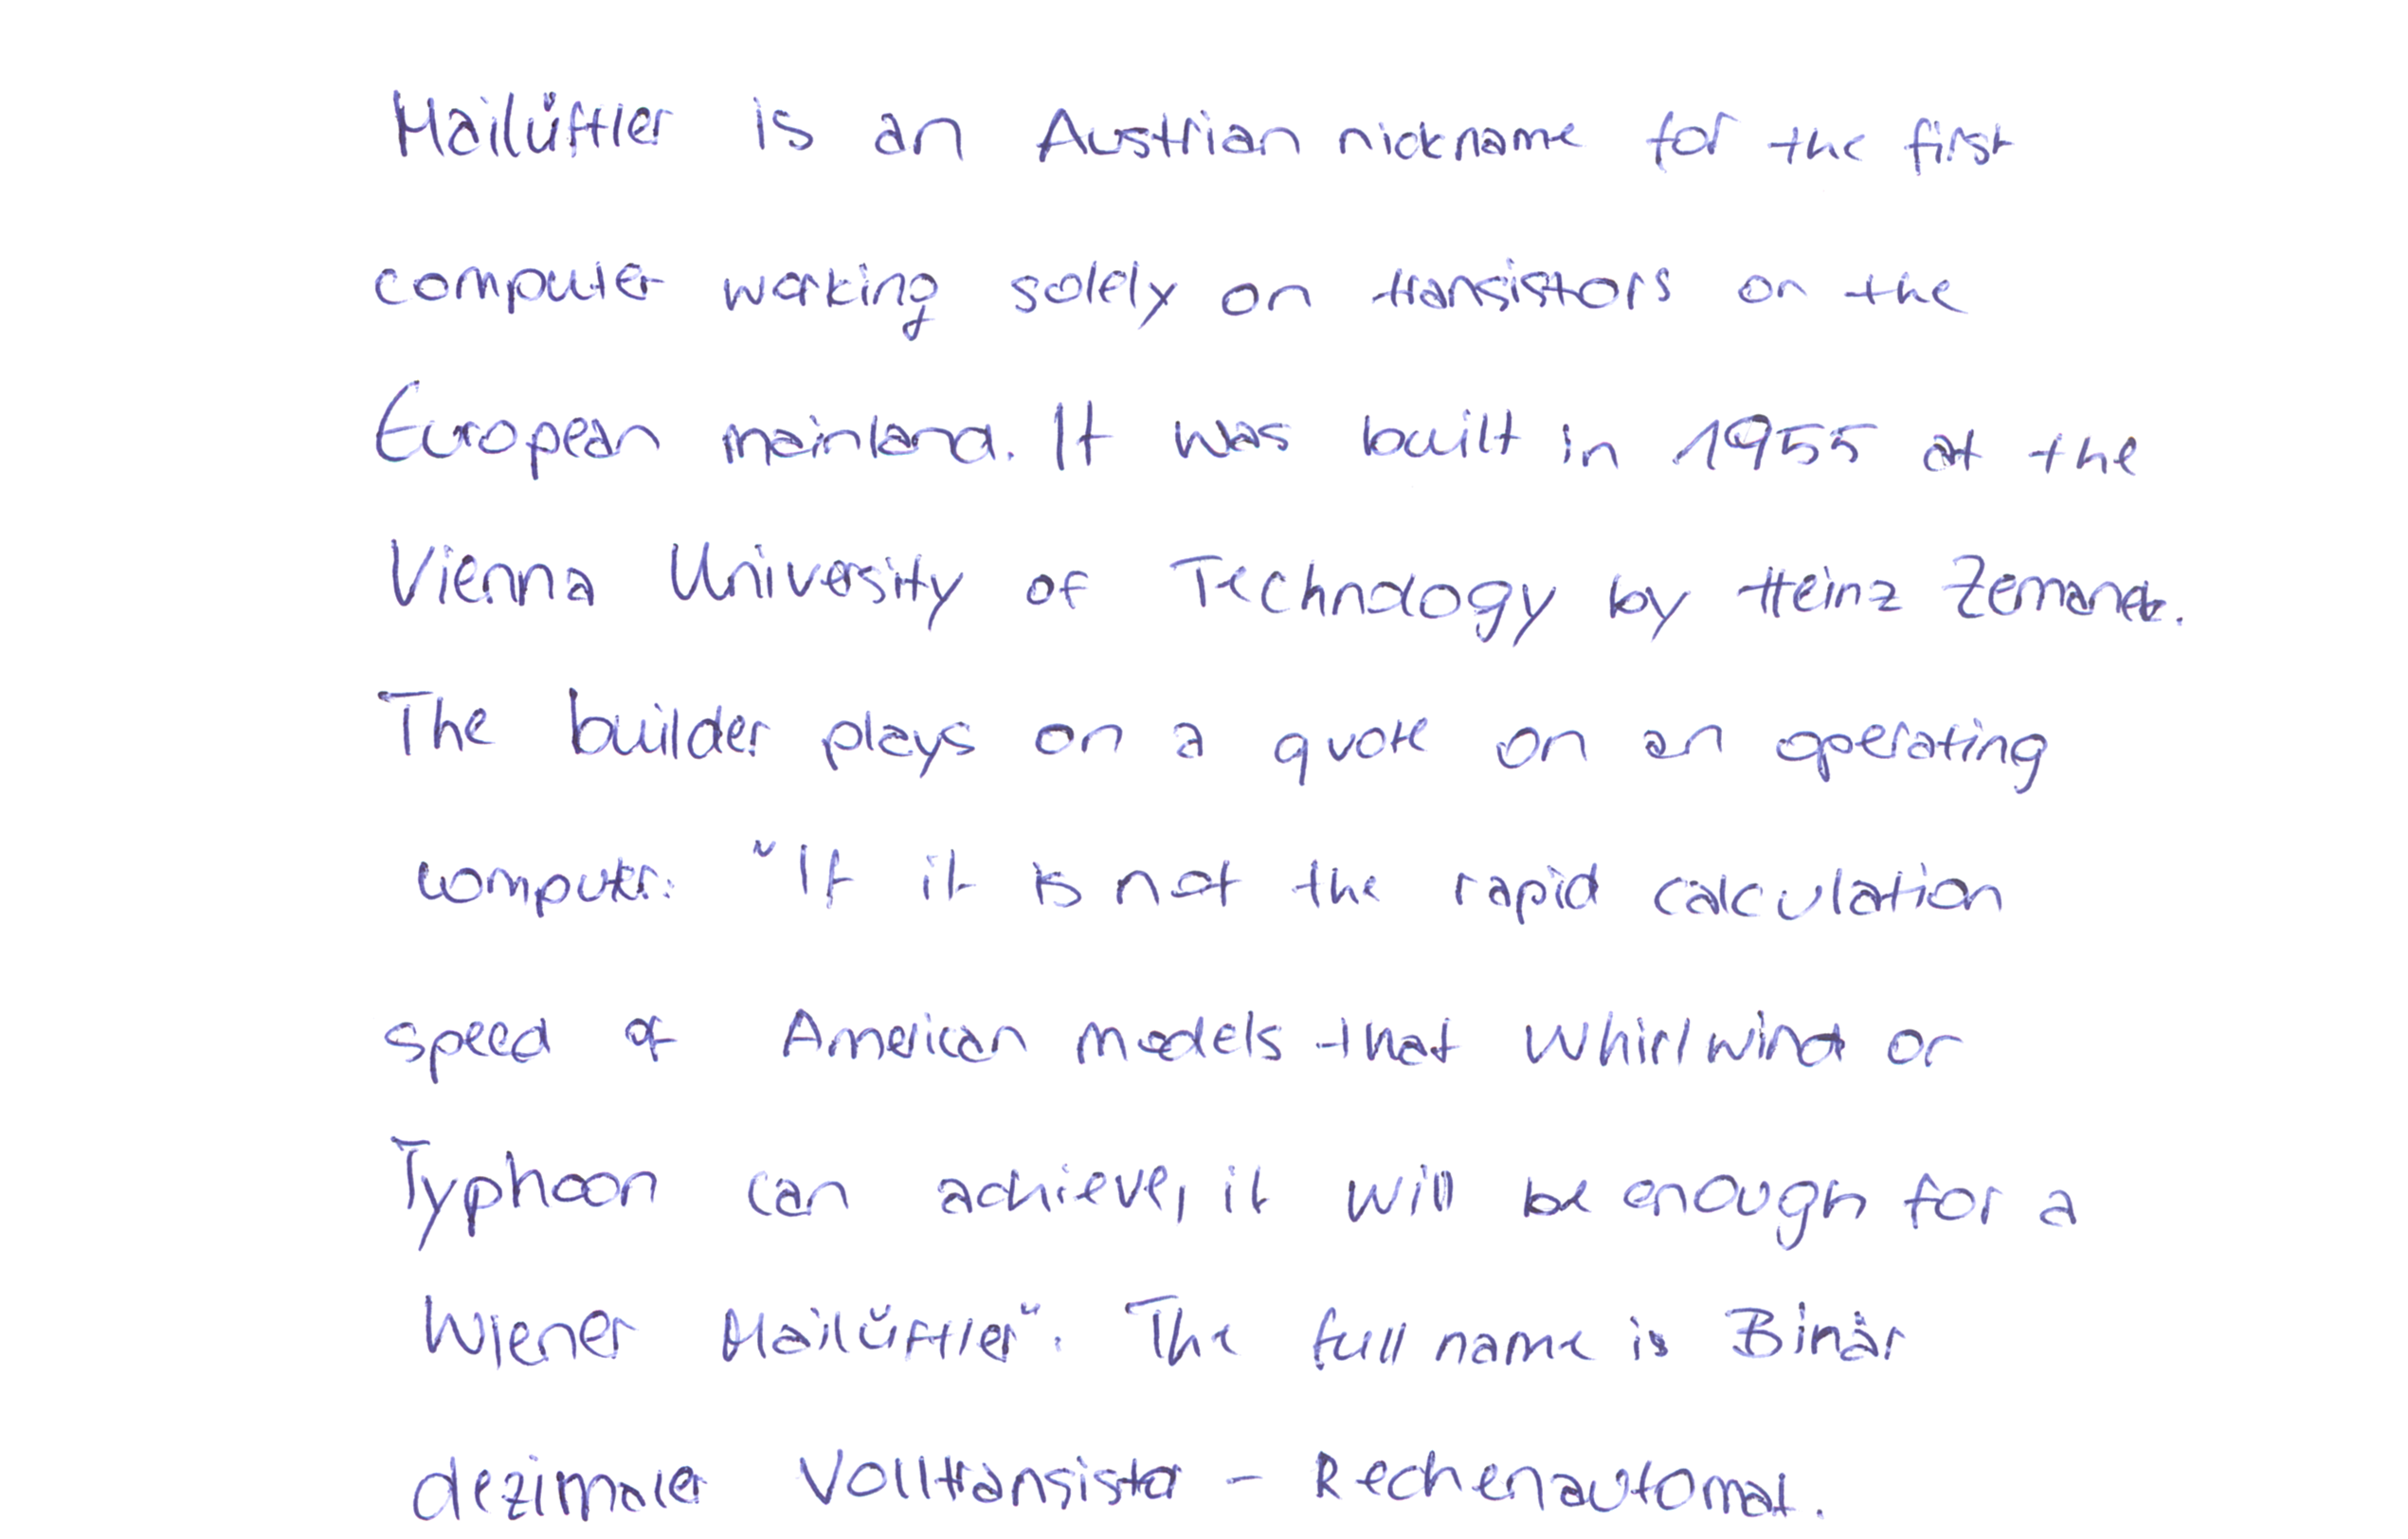 Mailüfterl is an Austrian nickname for the first
computer working solely on transistors on the
European mainland. It was built in 1955 at the
Vienna University of Technology by Heinz Zemanek.
The builder plays on a quote on an operating
computer: "If it is not the rapid calculation
speed of American models that Whirlwind or
Typhoon can achieve, it will be enough for a
Wiener Mailüfterl". The full name is Binär
dezimaler Volltransistor - Rechenautomat.